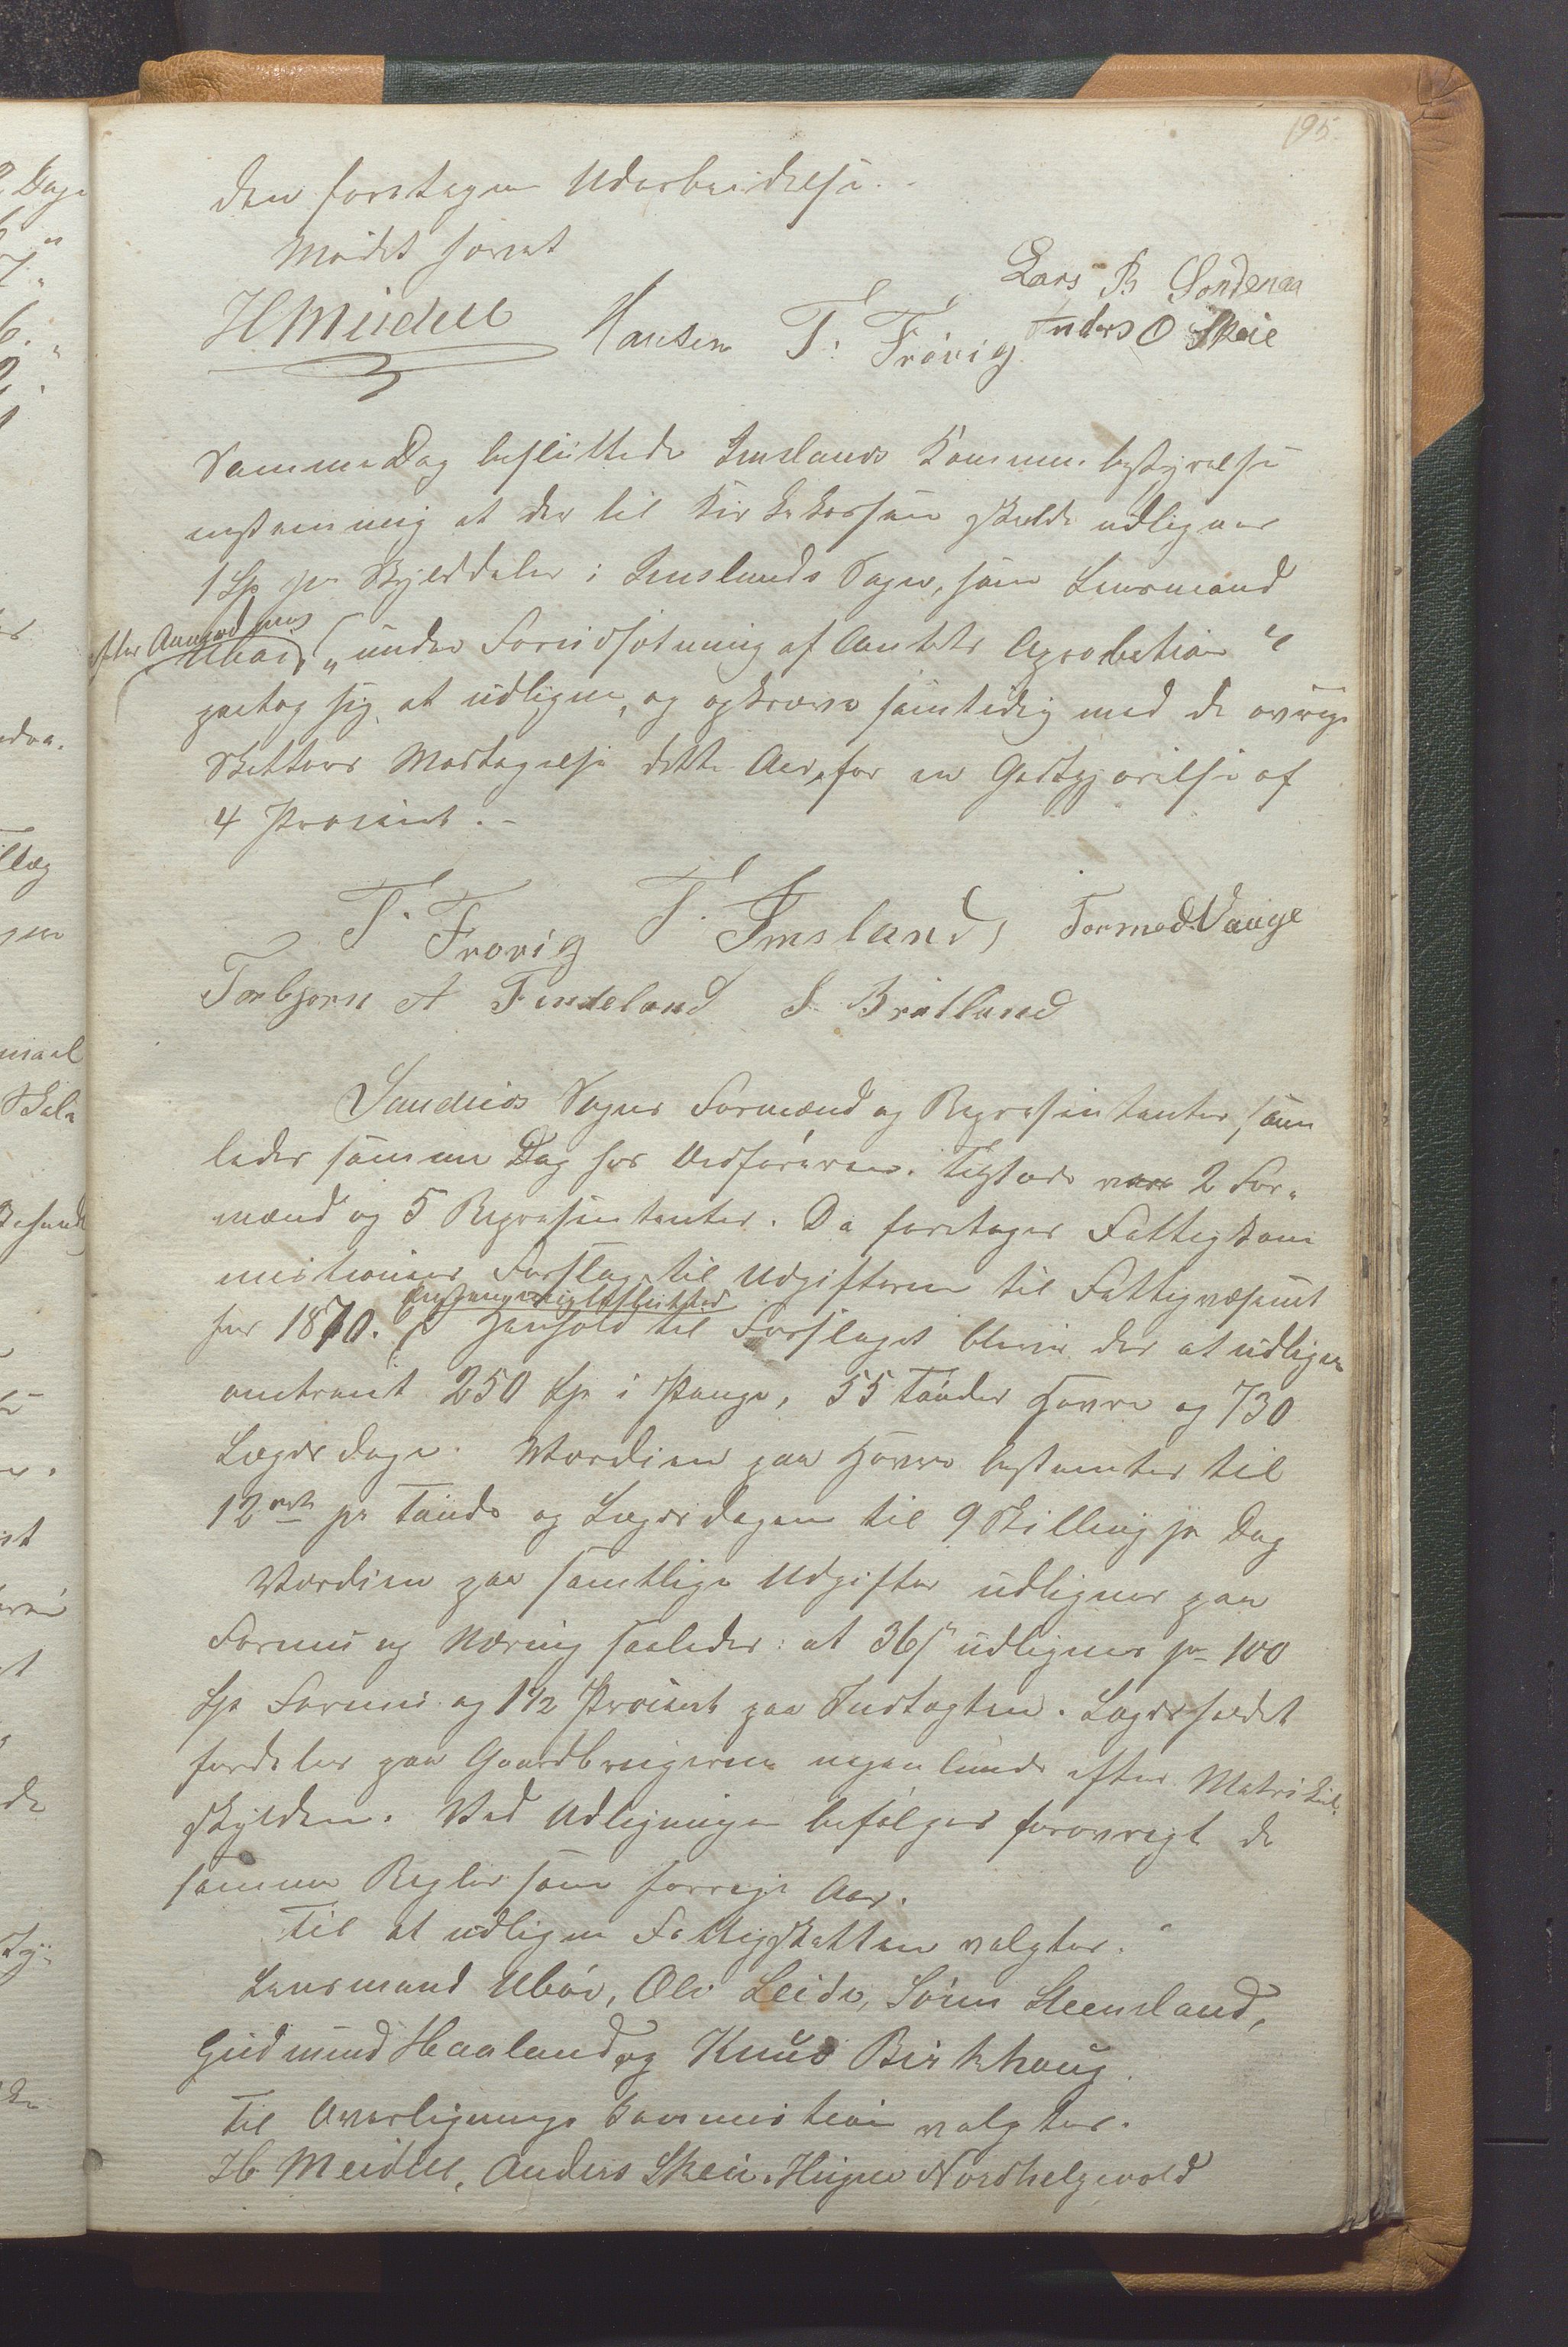 195.
den foretagne Udarbeidelse. -
Mödet hævet
Lars B Söndenaa
HMeidell Hansen T. Frövig Anders O Skeie
Samme Dag besluttede Imslands Kommunebestyrelse
enstemmig at der til Kirkekassen skulde udlignes
1 Sp pr Skylddaler i Imslands Sogn, som Lensmand
efter Anmodning
Uböe, "under Forudsætning af Amtets Aprobation"
paatog sig at udligne, og opkræve samtidig med de øvrige
Skatters Modtagelse dette Aar, for en Godtgjörelse af
4 Procent. -
T. Frøvig T. Imsland, Tormod Vaage
Torbjørn A Findeland S. Bråtland
Sandeids Sogns Formænd og Repræsentanter, sam-
ledes samme Dag hos Ordföreren. Tilstæde vare 2 For-
mænd og 5 Repræsentanter. Da foretages Fattigkom
missionens Forslag til Udgifterne til Fattigvæsenet
enstemmigt besluttet
for 1870. I Henhold til Forslaget bliver der at udligne
omtrent 250 Sp i Penge, 55 Tönder Havre og 730
Lægdsdage. Værdien paa Havre bestemtes til
12 ort pr Tönde og Lægdsdagene til 9 Skilling pr Dag
Værdien paa samtlige Udgifter udlignes paa
Formue og Næring saaledes: at 36 s udlignes pr 100
Sp Formue og 1 1/2 Procent paa Indtægten. Lægdsholdet
fordeles paa Gaardbrugerne efter Matrikul-
skylden. Ved Udligningen befölges forövrigt de
samme Regler som forrige Aar.
Til at udligne Fattigskatten valgtes.
Lensmand Uböe, Ole Leide, Sören Steensland,
Gudmund Haaland og Knud Birkhaug.
Til Overligningskommission valgtes.
H Meidell, Anders Skeie, Nordhelgevold